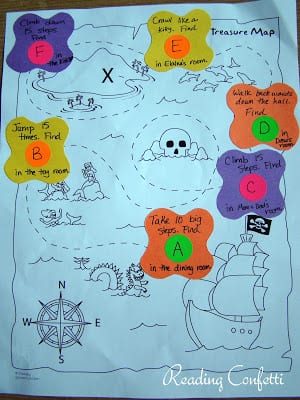 Treasure Map
Climb down
15 steps.
Find
F
in the kitchen
Crawl like a
kitty. Find
E
in Elaina's room.
Walk backwards
down the hall.
Find
D
in Drew's
room
Jump 15
times. Find
B
in the toy room
Climb 15
Steps. Find
C
in Mom & Dad's
room.
Take 10 big
steps. Find
A
in the dining room
X
N
W
E
S
Reading Confetti